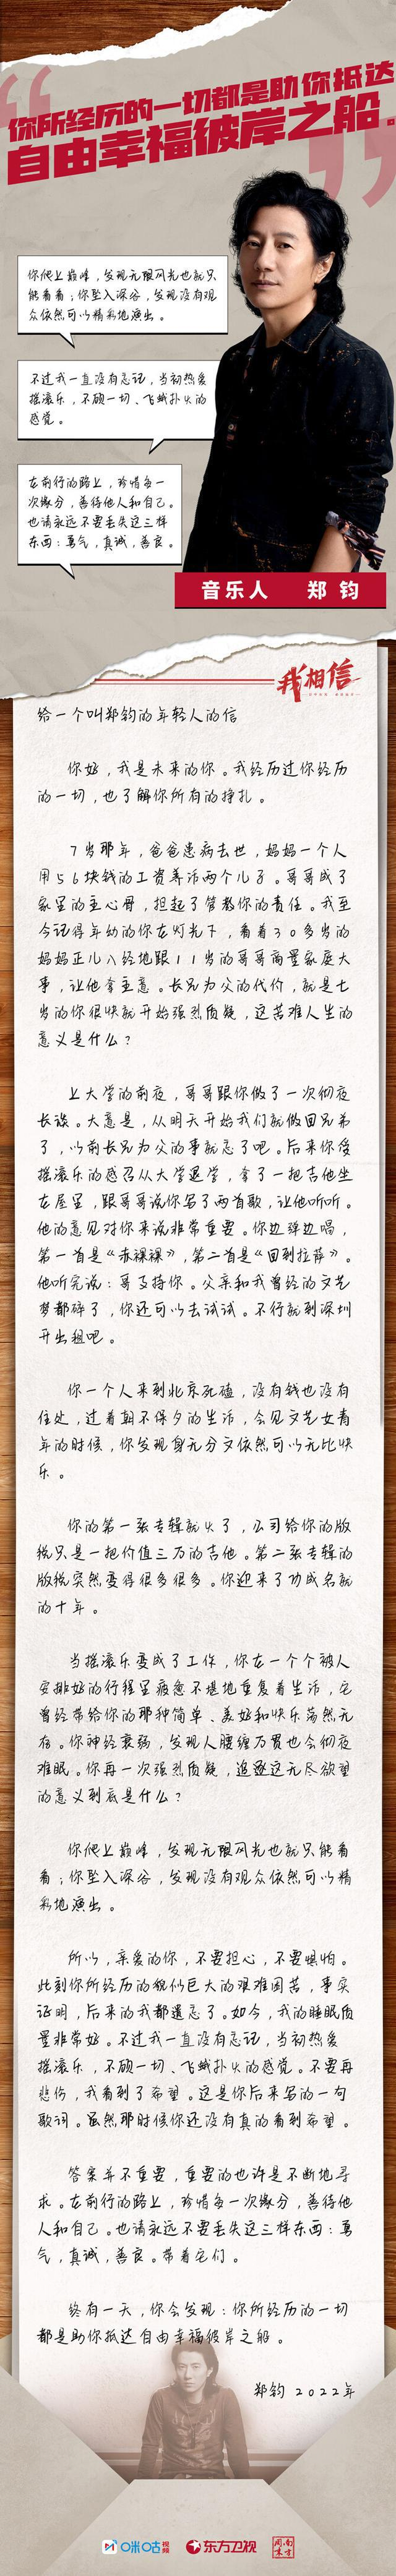 你所经历的一切都是助你抵达
自由幸福彼岸之船。
你爬上巅峰，发现无限风光也就只
能看看；你坠入深谷，发现没有观
众依然可以精彩地演出。
不过我一直没有忘记，当初热爱
摇滚乐，不顾一切、飞蛾扑火的
感觉。
在前行的路上，珍惜每一
次缘分，善待他人和自己。
也请永远不要丢失这三样
东西：勇气，真诚，善良。
音乐人 郑钧
我相信
给一个叫郑钧的年轻人的信
你好，我是未来的你。我经历过你经历
的一切，也了解你所有的挣扎。
7岁那年，爸爸患病去世，妈妈一个人
用56块钱的工资养活两个儿子。哥哥成了
家里的主心骨，担起了管教你的责任。我至
今记得年幼的你在灯光下，看着30多岁的
妈妈正儿八经地跟11岁的哥哥商量家庭大
事，让他拿主意。长兄为父的代价，就是七
岁的你很快就开始强烈质疑，这苦难人生的
意义是什么？
上大学的前夜，哥哥跟你做了一次彻夜
长谈。大意是，从明天开始我们就做回兄弟
了，以前长兄为父的事就忘了吧。后来你受
摇滚乐的感召从大学退学，拿了一把吉他坐
在屋里，跟哥哥说你写了两首歌，让他听听。
他的意见对你来说非常重要。你边弹边唱，
第一首是《赤裸裸》，第二首是《回到拉萨》。
他听完说：哥支持你。父亲和我曾经的文艺
梦都碎了，你还可以去试试。不行就到深圳
开出租吧。
你一个人来到北京死磕，没有钱也没有
住处，过着朝不保夕的生活，会见文艺女青
年的时候，你发现身无分文依然可以无比快
乐。
你的第一张专辑就火了，公司给你的版
税只是一把价值三万的吉他。第二张专辑的
版税突然变得很多很多。你迎来了功成名就
的十年。
当摇滚乐变成了工作，你在一个个被人
安排好的行程里疲惫不堪地重复着生活，它
曾经带给你的那种简单、美好和快乐荡然无
存。你神经衰弱，发现人腰缠万贯也会彻夜
难眠。你再一次强烈质疑，追逐这无尽欲望
的意义到底是什么？
你爬上巅峰，发现无限风光也就只能看
看；你坠入深谷，发现没有观众依然可以精
彩地演出。
所以，亲爱的你，不要担心，不要惧怕。
此刻你所经历的貌似巨大的艰难困苦，事实
证明，后来的我都遗忘了。如今，我的睡眠质
量非常好。不过我一直没有忘记，当初热爱
摇滚乐，不顾一切、飞蛾扑火的感觉。不要再
悲伤，我看到了希望。这是你后来写的一句
歌词。虽然那时候你还没有真的看到希望。
答案并不重要，重要的也许是不断地寻
求。在前行的路上，珍惜每一次缘分，善待他
人和自己。也请永远不要丢失这三样东西：勇
气，真诚，善良。带着它们。
终有一天，你会发现：你所经历的一切
都是助你抵达自由幸福彼岸之船。
郑钧 2022年
咪咕视频 东方卫视 南方周末